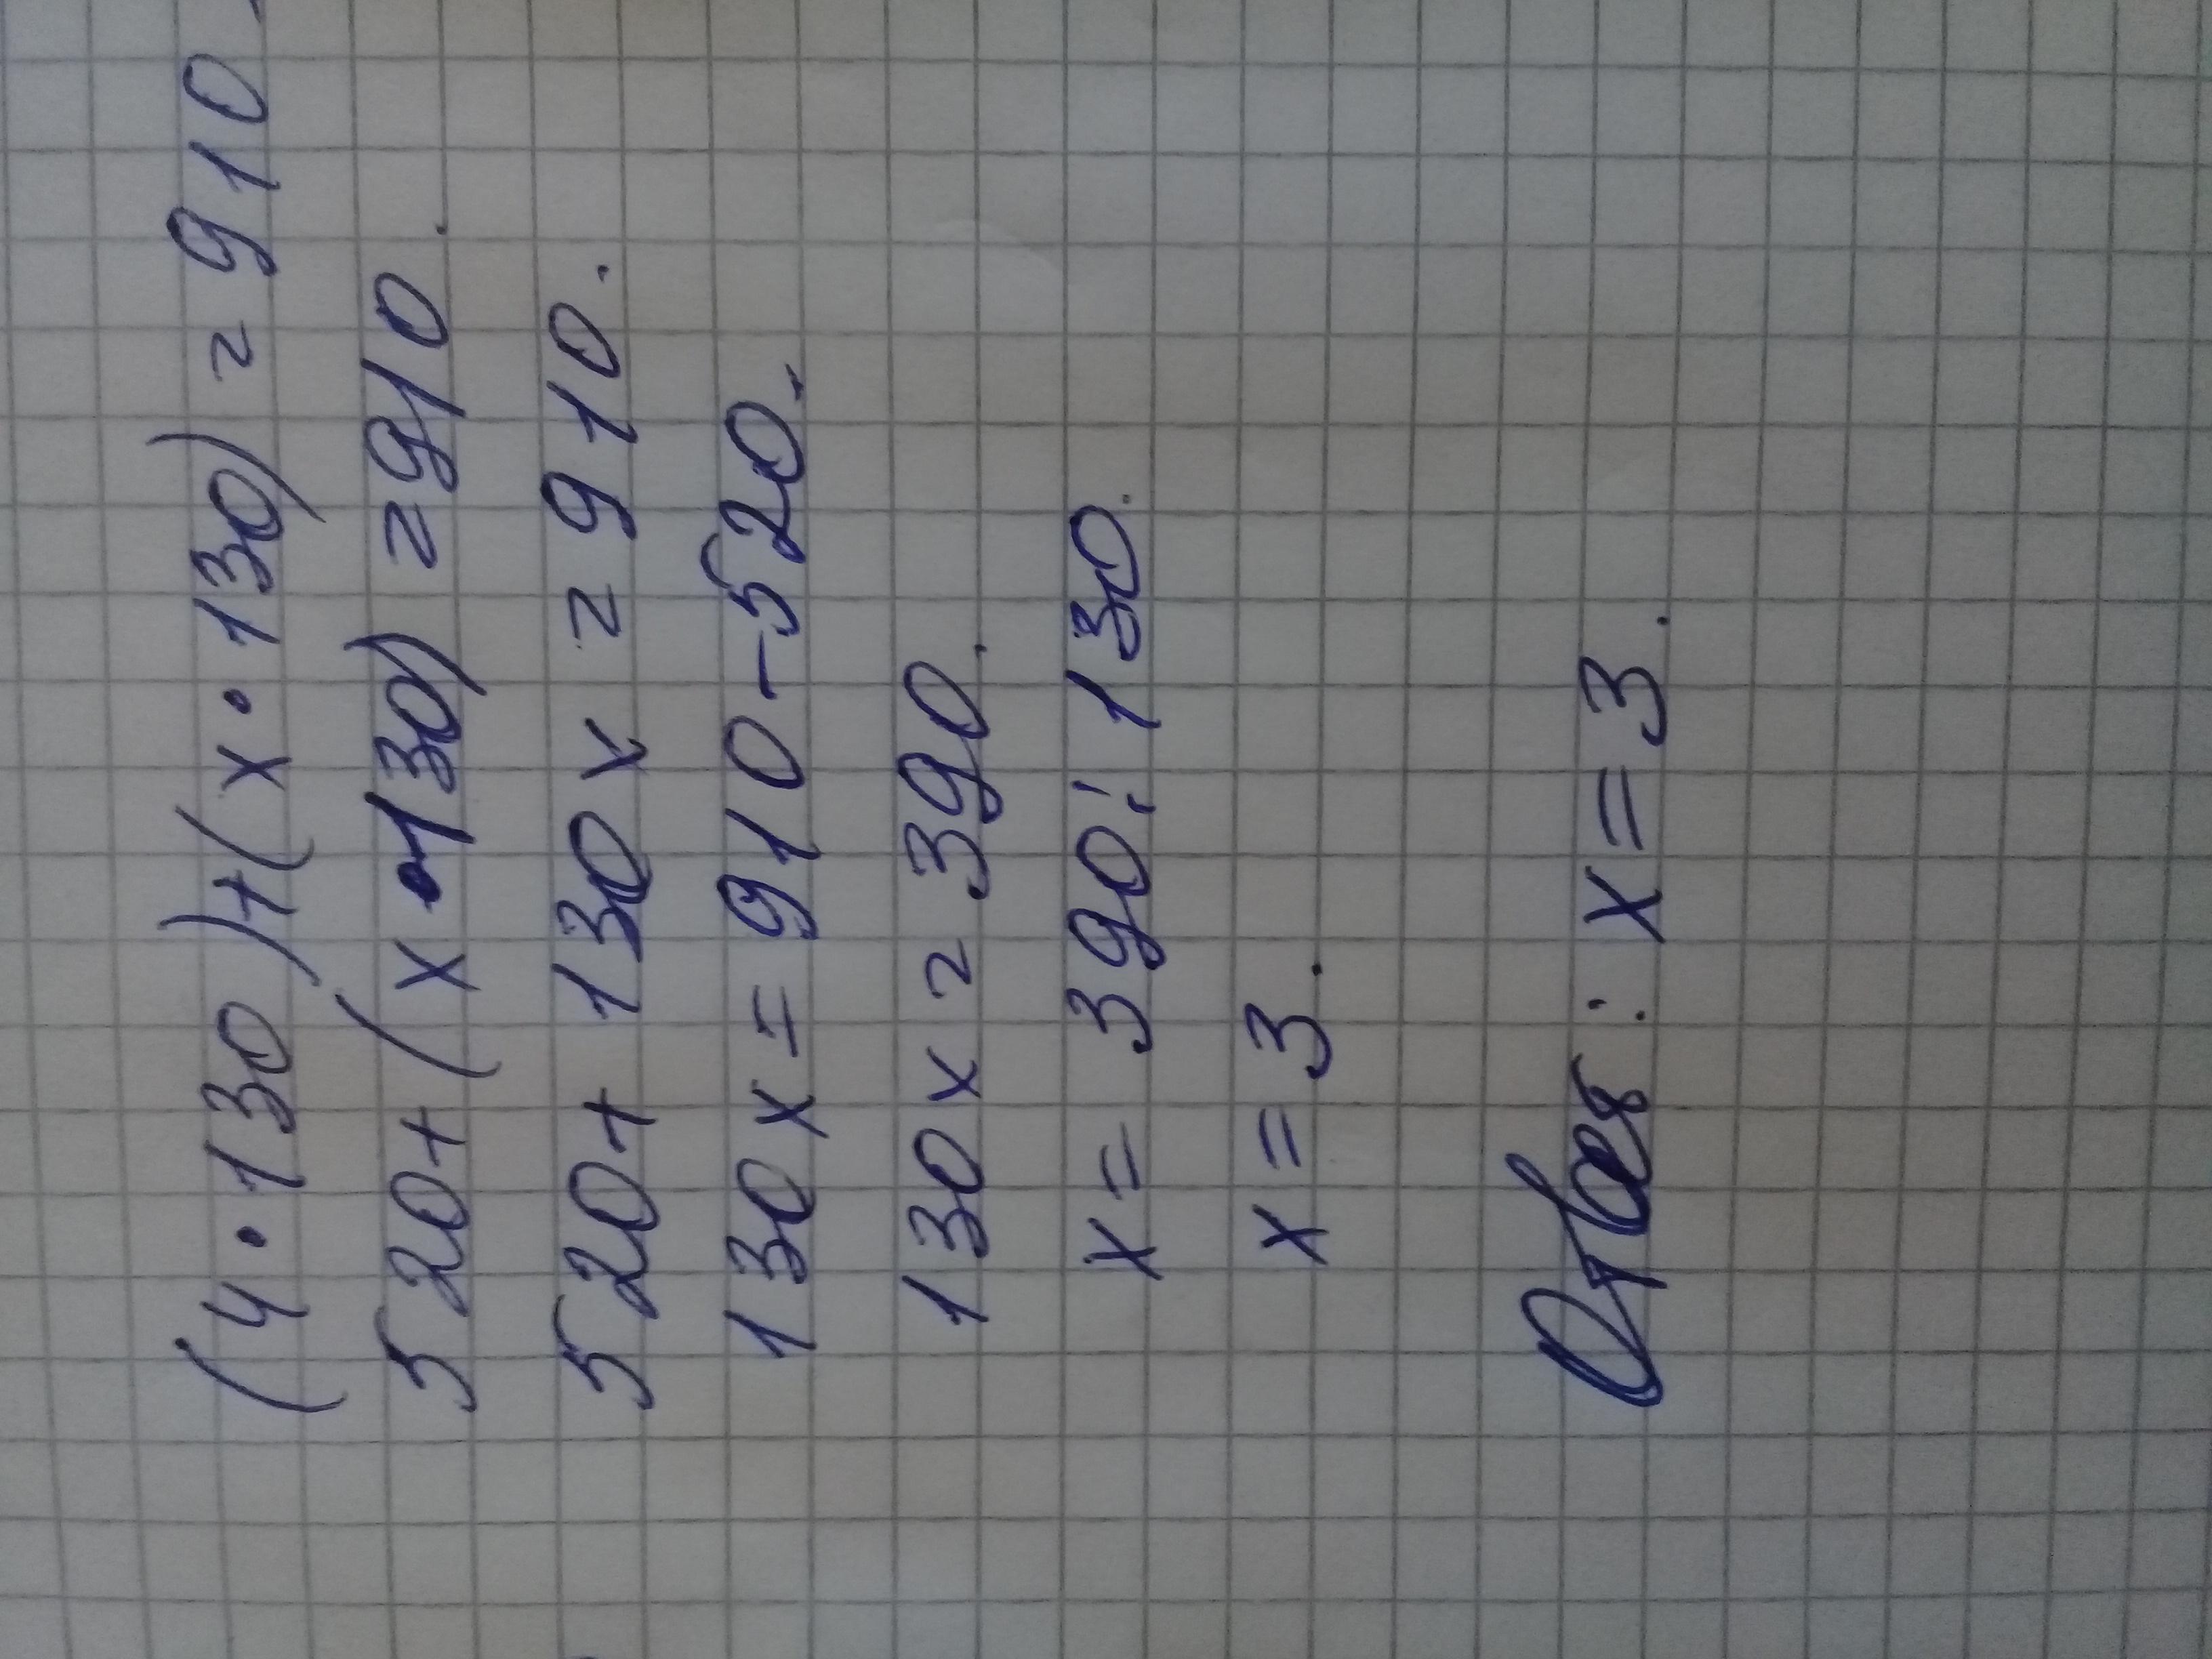 (4·130)+(x·130)=910
520+(x·130)=910.
520+130x=910.
130x=910-520.
130x=390.
x=390:130.
x=3.
Ответ: x=3.